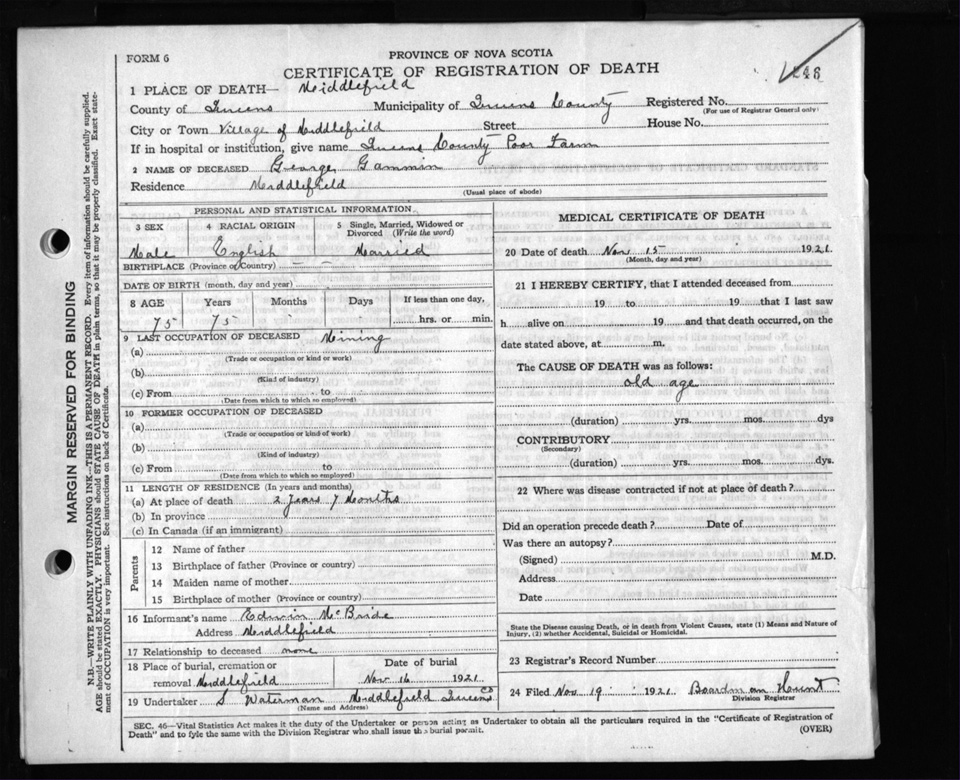 FORM 6
PROVINCE OF NOVA SCOTIA
CERTIFICATE OF REGISTRATION OF DEATH
1 PLACE OF DEATH— Middlefield
County of Queens Municipality of Queens County Registered No.
(For use of Registrar General only)
City or Town Village of Middlefield Street House No.
If in hospital or institution, give name Queens County Poor Farm
2 NAME OF DECEASED George Gammin
Residence Middlefield
(Usual place of abode)
PERSONAL AND STATISTICAL INFORMATION
3 SEX 4 RACIAL ORIGIN 5 Single, Married, Widowed or Divorced (Write the word)
Male English Married
BIRTHPLACE (Province or Country) — —
DATE OF BIRTH (month, day and year)
8 AGE Years Months Days If less than one day,
75 75 hrs. or min.
9 LAST OCCUPATION OF DECEASED Mining
(a)
(Trade or occupation or kind of work)
(b)
(Kind of industry)
(c) From to
(Date from which to which so employed)
10 FORMER OCCUPATION OF DECEASED
(a)
(Trade or occupation or kind of work)
(b)
(Kind of industry)
(c) From to
(Date from which to which so employed)
11 LENGTH OF RESIDENCE (In years and months)
(a) At place of death 2 Years 7 Months
(b) In province
(c) In Canada (if an immigrant)
Parents
12 Name of father
13 Birthplace of father (Province or country)
14 Maiden name of mother
15 Birthplace of mother (Province or country)
16 Informant's name Edwin McBride
Address Middlefield
17 Relationship to deceased none
18 Place of burial, cremation or removal Middlefield
Date of burial
Nov 16 1921
19 Undertaker S Waterman Middlefield Queens Co
(Name and Address)
MEDICAL CERTIFICATE OF DEATH
20 Date of death Nov 15 1921
(Month, day and year)
21 I HEREBY CERTIFY, that I attended deceased from
19 to 19 that I last saw
h alive on 19 and that death occurred, on the
date stated above, at m.
The CAUSE OF DEATH was as follows:
old age
(duration) yrs. mos. dys
CONTRIBUTORY
(Secondary)
(duration) yrs. mos. dys.
22 Where was disease contracted if not at place of death?
Did an operation precede death? Date of
Was there an autopsy?
(Signed) M.D.
Address
Date
State the Disease causing Death, or in death from Violent Causes, state (1) Means and Nature of
Injury, (2) whether Accidental, Suicidal or Homicidal.
23 Registrar's Record Number
24 Filed Nov 19 1921 Boardman Hount
Division Registrar
SEC. 46—Vital Statistics Act makes it the duty of the Undertaker or person acting as Undertaker to obtain all the particulars required in the "Certificate of Registration of
Death" and to fyle the same with the Division Registrar who shall issue the burial permit.
(OVER)
MARGIN RESERVED FOR BINDING
N.B.—WRITE PLAINLY WITH UNFADING INK—THIS IS A PERMANENT RECORD. Every item of information should be carefully supplied.
AGE should be stated EXACTLY. PHYSICIANS should STATE CAUSE OF DEATH in plain terms, so that it may be properly classified. Exact state-
ment of OCCUPATION is very important. See instructions on back of Certificate.